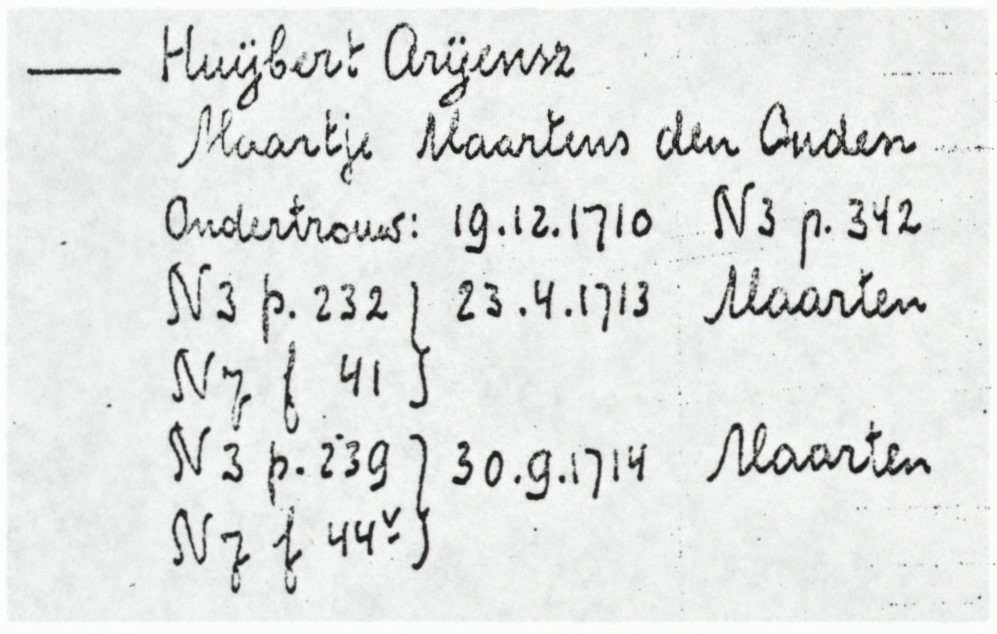 — Huijbert Arijensz
Maartje Maartens den Ouden
Ondertrouw: 19.12.1710 N3 p. 342
N3 p. 232 } 23.4.1713 Maarten
N7 f 41 }
N3 p. 239 } 30.9.1714 Maarten
N7 f 44ᵛ }